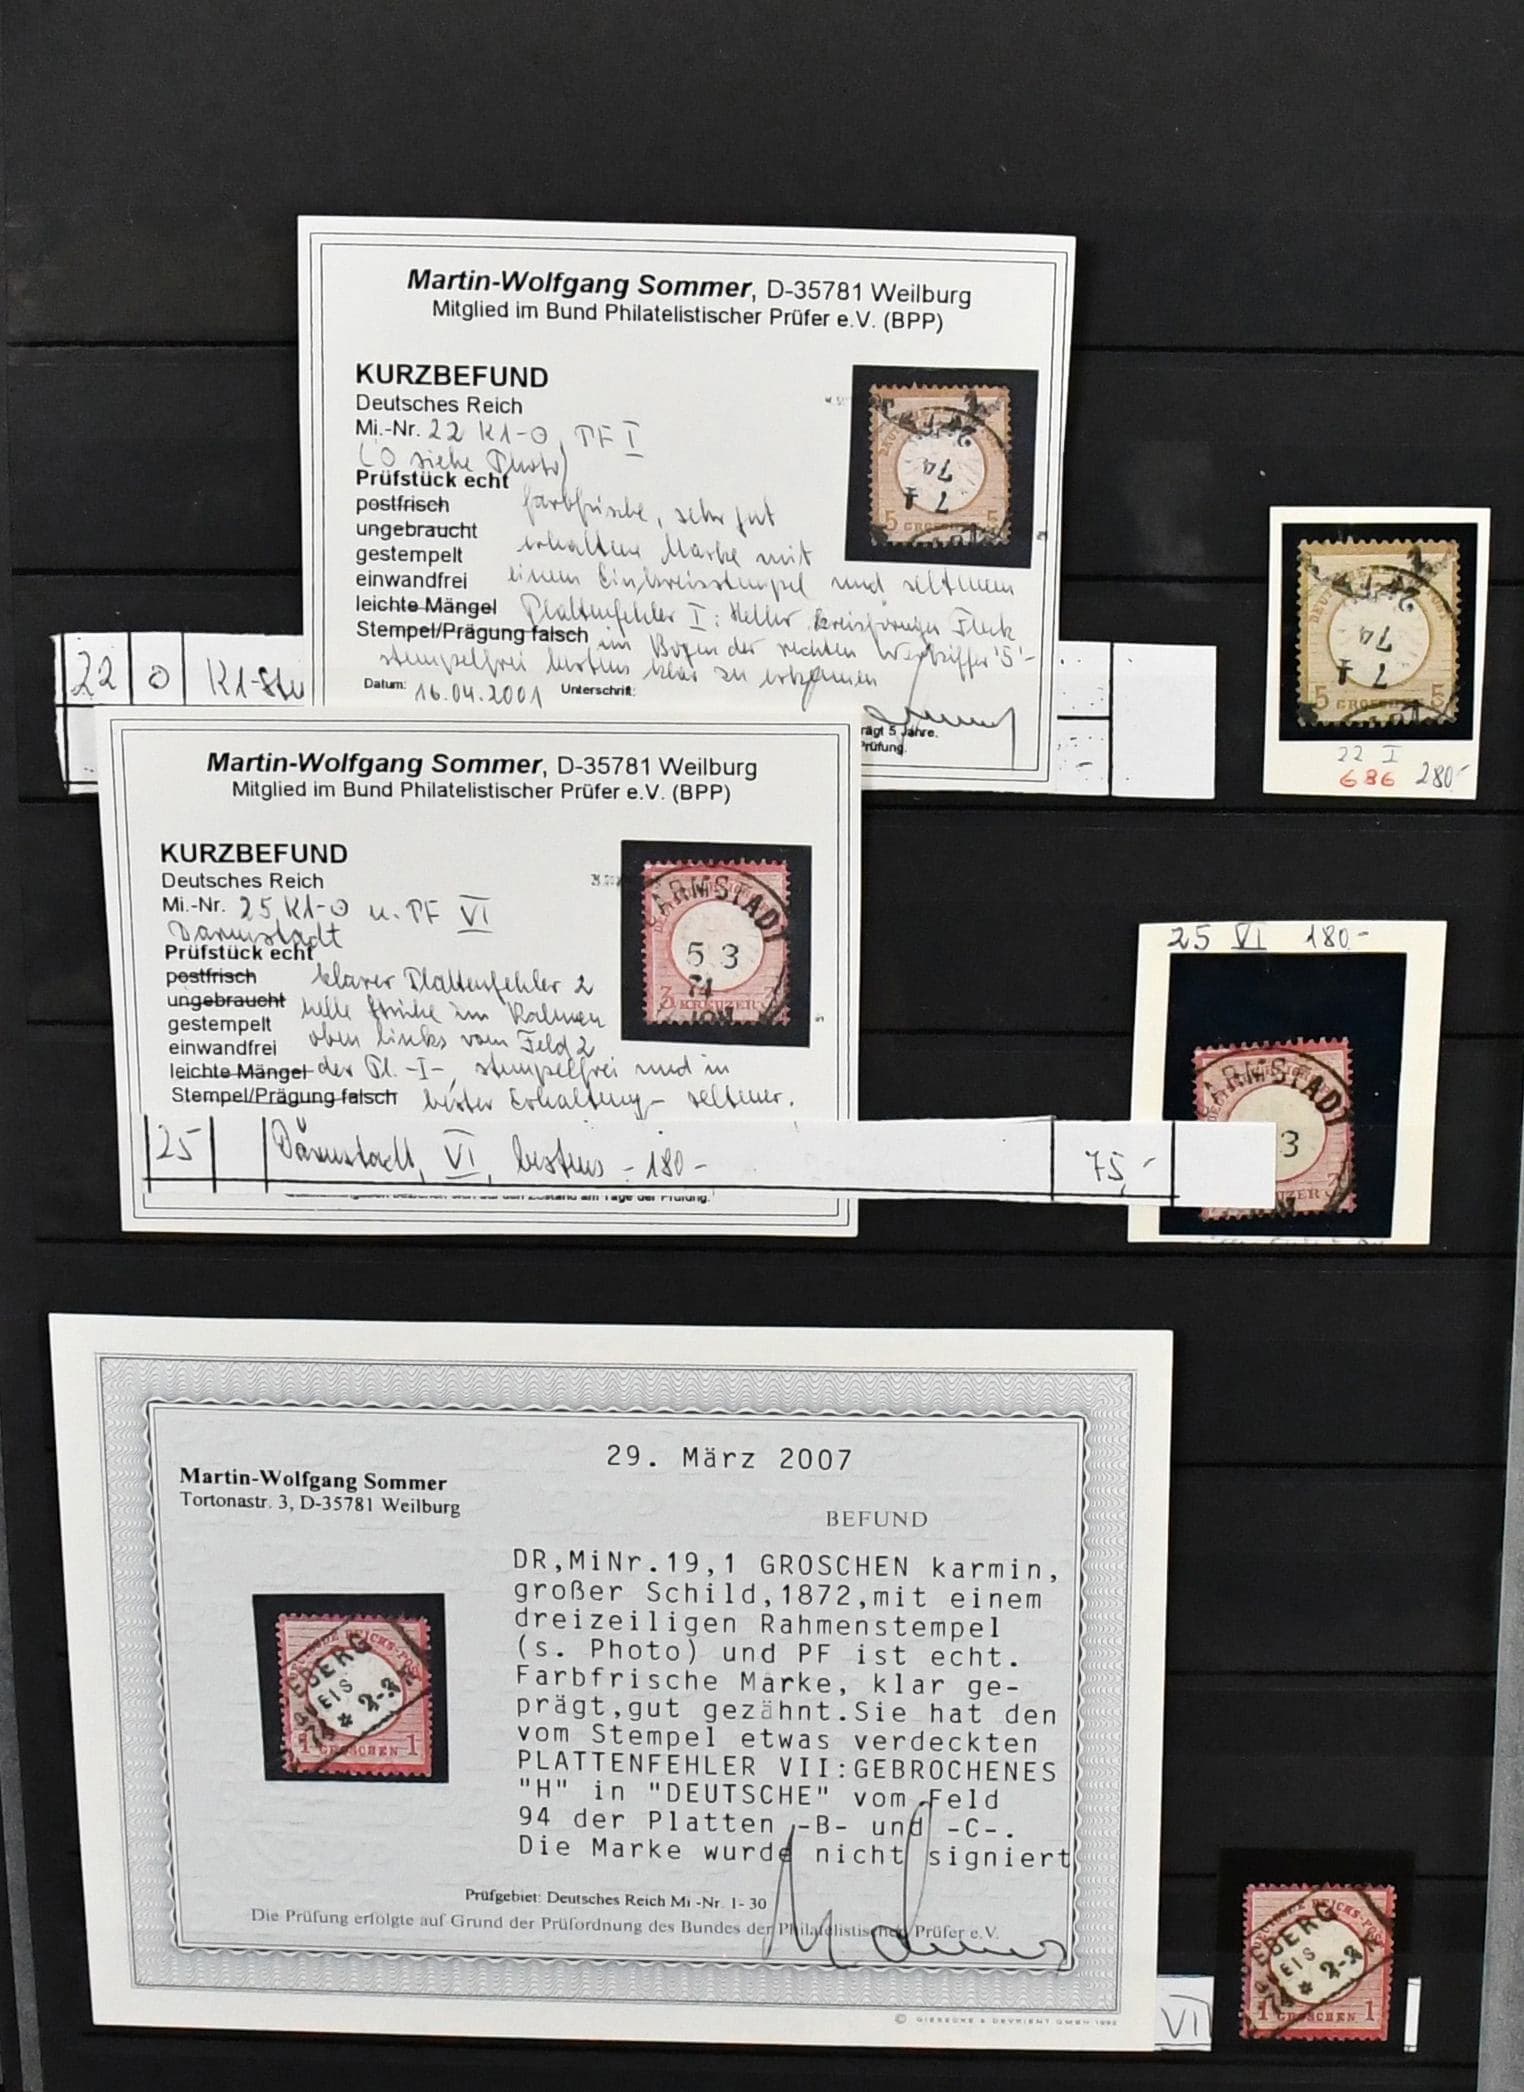 Martin-Wolfgang Sommer, D-35781 Weilburg
Mitglied im Bund Philatelistischer Prüfer e.V. (BPP)
KURZBEFUND
Deutsches Reich
Mi.-Nr. 22 K1-O, PF I
(O siehe Photo)
Prüfstück echt
postfrisch farbfrische, sehr gut
ungebraucht erhaltene Marke mit
gestempelt einem Einkreisstempel und seltenem
einwandfrei
leichte Mängel Plattenfehler I: Heller kreisförmiger Fleck
Stempel/Prägung falsch im Bogen der rechten Wertziffer '5'-
stempelfrei bestens klar zu erkennen
Datum: 16.04.2001 Unterschrift:
rägt 5 Jahre.
Prüfung.
5 GROSCHEN 5
24
74
7 1
22 O K1-Ste
5 GROSCHEN 5
74
7 1
22 I
686 280.-
Martin-Wolfgang Sommer, D-35781 Weilburg
Mitglied im Bund Philatelistischer Prüfer e.V. (BPP)
KURZBEFUND
Deutsches Reich
Mi.-Nr. 25 K1-O u. PF VI
Darmstadt
Prüfstück echt
postfrisch klarer Plattenfehler 2
ungebraucht helle Striche im Rahmen
gestempelt oben links vom Feld 2
einwandfrei
leichte Mängel der Pl. -I-, stempelfrei und in
Stempel/Prägung falsch bester Erhaltung - seltener.
DARMSTADT
5 3
74
3 KREUZER 3
25 Darmstadt, VI, bestens - 180 - 75,-
am Tage der Prüfung.
25 VI 180.-
DARMSTADT
3
ZER 3
29. März 2007
Martin-Wolfgang Sommer
Tortonastr. 3, D-35781 Weilburg
BEFUND
DR,MiNr.19,1 GROSCHEN karmin,
großer Schild,1872,mit einem
dreizeiligen Rahmenstempel
(s. Photo) und PF ist echt.
Farbfrische Marke, klar ge-
prägt,gut gezähnt.Sie hat den
vom Stempel etwas verdeckten
PLATTENFEHLER VII:GEBROCHENES
"H" in "DEUTSCHE" vom Feld
94 der Platten -B- und -C-.
Die Marke wurde nicht signiert
EBERG
EIS
74 * 2-3
1 GROSCHEN 1
Prüfgebiet: Deutsches Reich Mi -Nr. 1- 30
Die Prüfung erfolgte auf Grund der Prüfordnung des Bundes der Philatelistischen Prüfer e.V.
© GIESECKE & DEVRIENT GMBH 1992
VI
EBERG
EIS
74 * 2-3
1 GROSCHEN 1